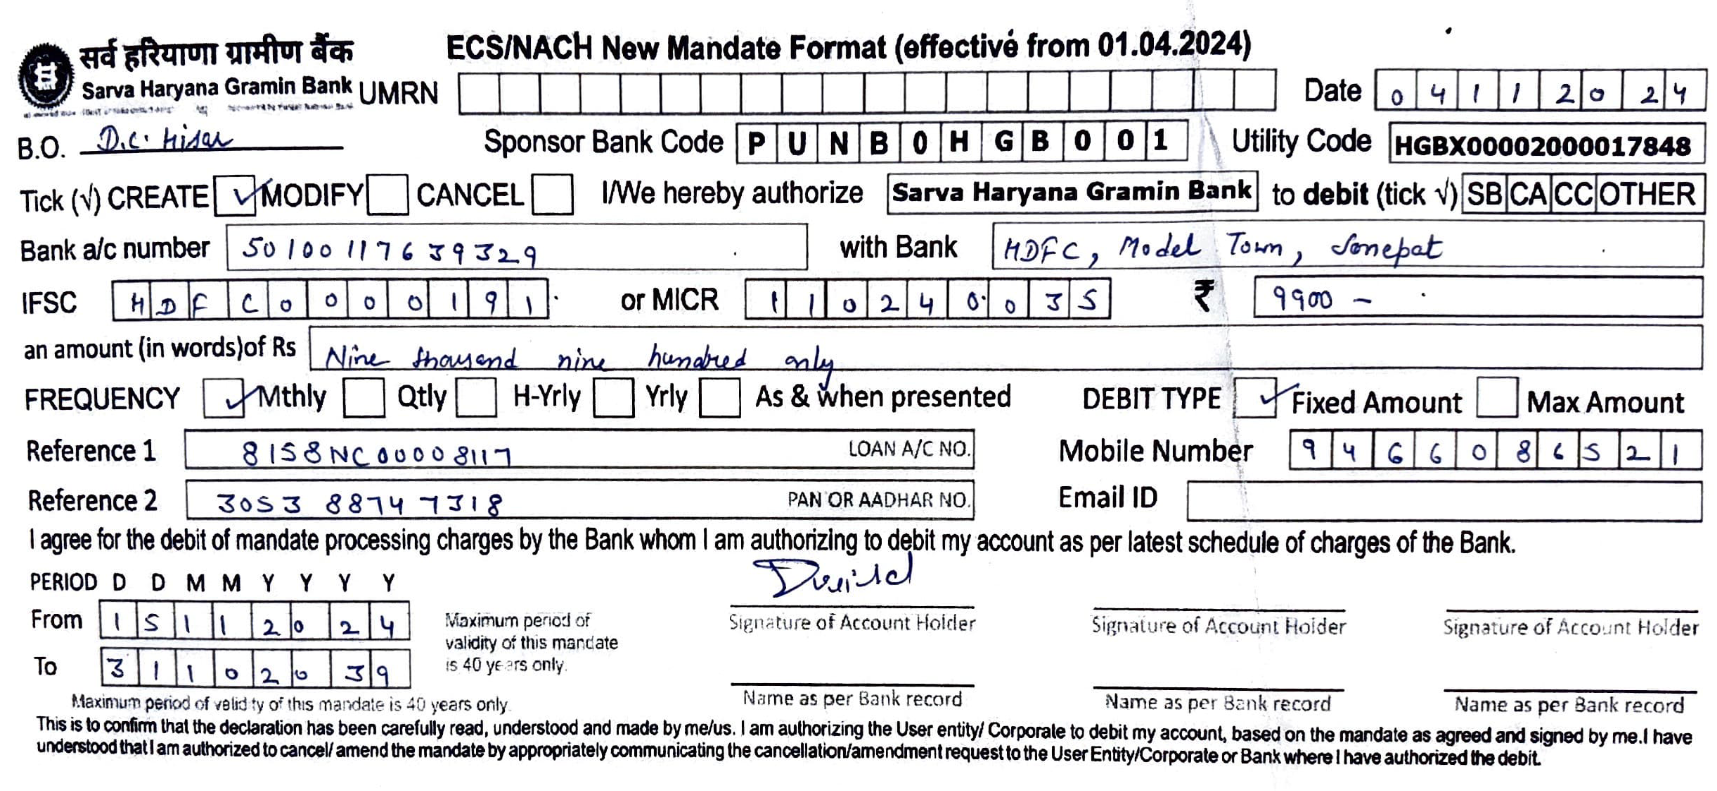 सर्व हरियाणा ग्रामीण बैंक ECS/NACH New Mandate Format (effective from 01.04.2024)
Sarva Haryana Gramin Bank UMRN Date 04112024
B.O. D.C. Hisar Sponsor Bank Code PUNB0HGB001 Utility Code HGBX00002000017848
Tick (√) CREATE ✓ MODIFY CANCEL I/We hereby authorize Sarva Haryana Gramin Bank to debit (tick √) SB CA CC OTHER
Bank a/c number 50100117639329 with Bank HDFC, Model Town, Sonepat
IFSC HDFC0000191 or MICR 110240035 ₹ 9900 -
an amount (in words)of Rs Nine thousand nine hundred only
FREQUENCY ✓ Mthly Qtly H-Yrly Yrly As & when presented DEBIT TYPE ✓ Fixed Amount Max Amount
Reference 1 8158NC00008117 LOAN A/C NO. Mobile Number 9466086521
Reference 2 3053 8874 7318 PAN OR AADHAR NO. Email ID
I agree for the debit of mandate processing charges by the Bank whom I am authorizing to debit my account as per latest schedule of charges of the Bank.
PERIOD D D M M Y Y Y Y
From 15112024 Maximum period of validity of this mandate is 40 years only. Signature of Account Holder Signature of Account Holder Signature of Account Holder
To 31102039
Maximum period of validity of this mandate is 40 years only. Name as per Bank record Name as per Bank record Name as per Bank record
This is to confirm that the declaration has been carefully read, understood and made by me/us. I am authorizing the User entity/ Corporate to debit my account, based on the mandate as agreed and signed by me.I have
understood that I am authorized to cancel/ amend the mandate by appropriately communicating the cancellation/amendment request to the User Entity/Corporate or Bank where I have authorized the debit.